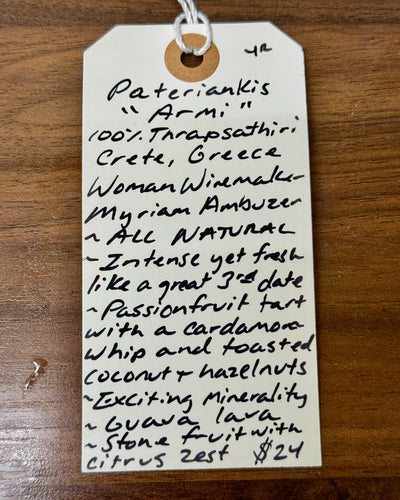 YR
Pateriankis
"Armi"
100% Thrapsathiri
Crete, Greece
Woman Winemaker
Myriam Ambuzer
~ ALL NATURAL
~ Intense yet fresh
like a great 3rd date
~ Passionfruit tart
with a cardamom
whip and toasted
coconut + hazelnuts
~ Exciting Minerality
~ Guava lava
~ Stone fruit with
citrus zest $24